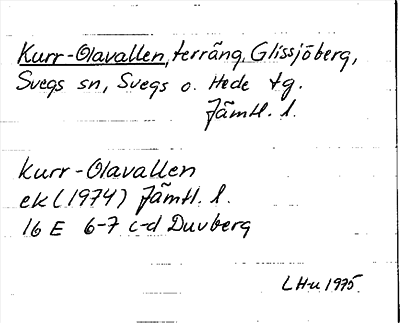 Kurr-Olavallen, terräng, Glissjöberg,
Svegs sn, Svegs o. Hede tg.
Jämtl. l.
Kurr-Olavallen
ek (1974) Jämtl. l.
16 E 6-7 c-d Duvberg
LHu 1975.